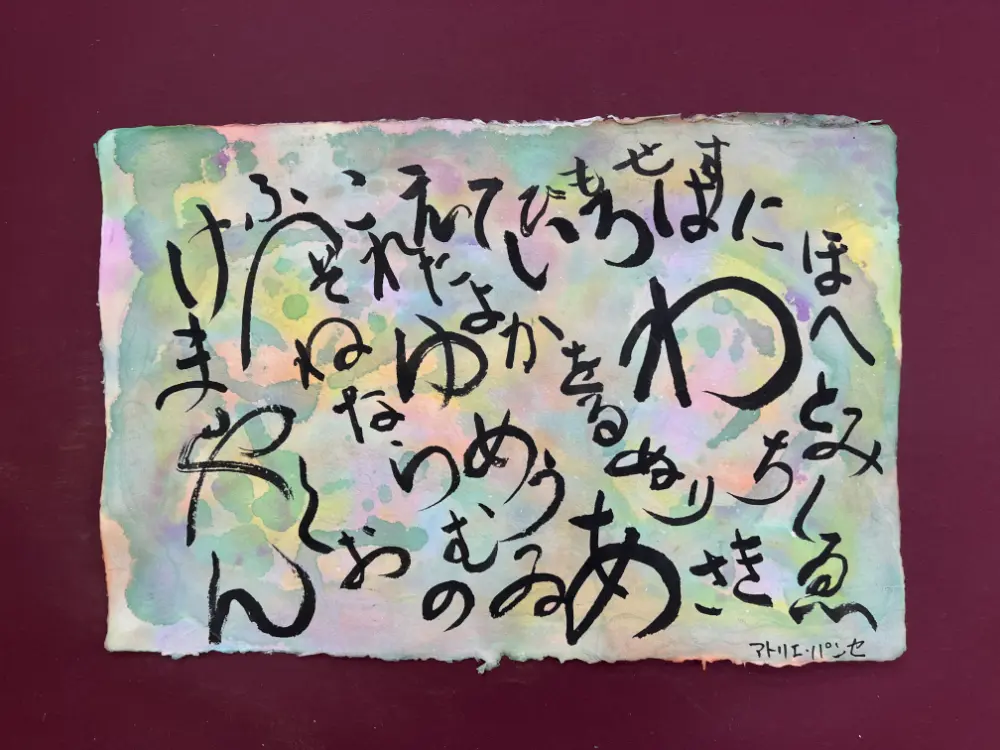 いろはにほへと
ちりぬるを
わかよたれそ
つねならむ
うゐのおくやま
けふこえて
あさきゆめみし
ゑひもせす
ん
アトリエ・パンセ